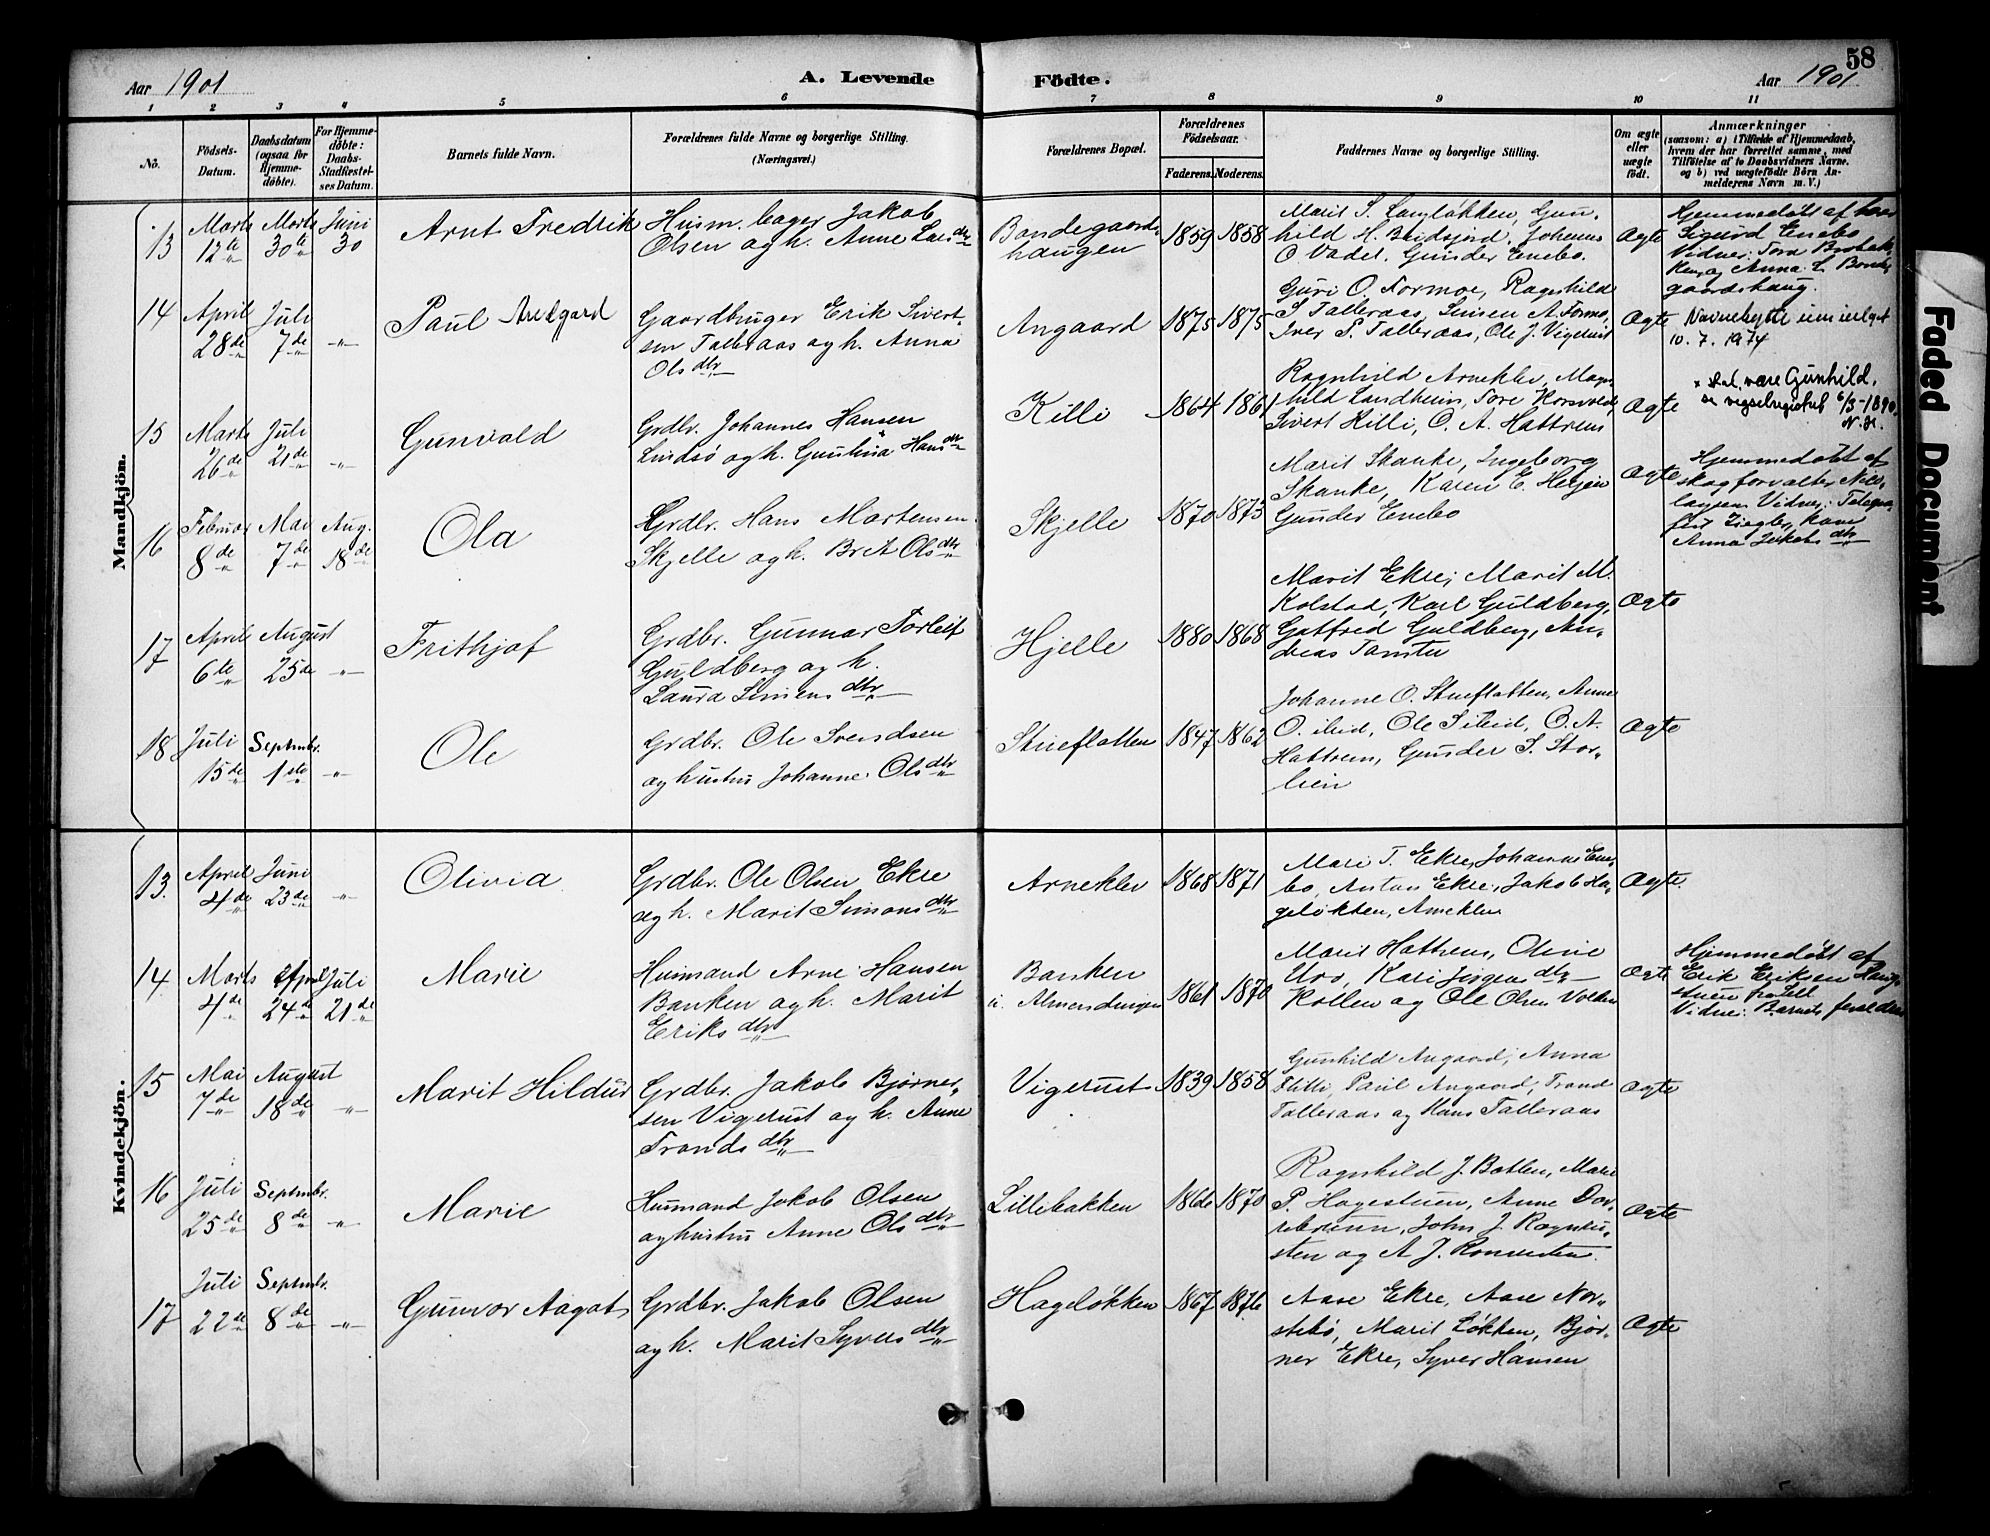 58
Aar 1901
A. Levende
Födte.
Aar 1901
1 2 3 4 5 6 7 8 9 10 11
No.
Födsels-
Datum.
Daabsdatum
(ogsaa for
Hjemme-
döbte).
For Hjemme-
döbte:
Daabs-
Stadfæstel-
ses Datum.
Barnets fulde Navn.
Forældrenes fulde Navne og borgerlige Stilling.
(Næringsvei.)
Forældrenes Bopæl.
Forældrenes
Födselsaar.
Faderens.
Moderens.
Faddernes Navne og borgerlige Stilling.
Om ægte
eller
uægte
födt.
Anmærkninger
(saasom: a) i Tilfælde af Hjemmedaab,
hvem der har forrettet samme, med
Tilföielse af to Daabsvidners Navne.
og b) ved uægtefödte Börn An-
melderens Navn m. V.)
Mandkjön.
13
Marts
12te
Marts
30te
Juni
30
Arnt Fredrik
Husm. bager Jakob
Olsen og h. Anne Larsdtr
Bondegaards-
haugen
1859 1858
Marit S. Langløkken, Gun-
hild H. Johanne
O. Vadet. Gunder Enebo.
Ægte
Hjemmedøbt af
Sigurd Enebo
Vidner: Tora
og Anna L. Bonde-
gaardshaug.
14
April
28de
Juli
7de
"
Paul Andgard
Gaardbruger Erik Sivert-
sen Talleraas og h. Anna
Olsdtr
Angaard
1875 1875
Guri O. Formoe, Ragnhild
S. Talleraas, Simen A. Formo,
Iver S. Talleraas, Ole J. Vigerust
Ægte
Navnebytte
10. 7. 1974
15
Marts
26de
Juli
21de
"
Gunvald
Grdbr. Johannes Hansen
Lindsø og h. Hansdtr
Killi
1864 1861
Ragnhild Arneklev, Magn-
hild Landheim, Tore Korsvold
Sivert Killi, O. A. Hattrem
Ægte
x skal være Gunhild,
se vigselregistret 6/3-1890
N. H.
16
Februar
8de
Mai
7de
Aug.
18de
Ola
Grdbr. Hans Mortensen
Skjelle og h. Brit Olsdtr
Skjelle
1870 1873
Marit Skanke, Ingeborg
Skanke, Karen E.
Gunder Enebo
Ægte
Hjemmedøbt af
skogforvalter
Vidner:
Ziegler, kone
Anna Jakobsdtr
17
April
6te
August
25de
"
Frithjof
Grdbr. Gunnar Torleif
Guldberg og h.
Laura Simensdtr
Hjelle
1880 1868
Marit Ekre, Marit M.
Kolstad, Karl Guldberg,
Gotfred Guldberg, An-
dreas
Ægte
18
Juli
15de
Septmbr.
1ste
"
Ole
Grdbr. Ole Svendsen
og hustru Johanne Olsdtr
Stueflotten
1847 1862
Johanne O. Stueflotten, Anne
O. ibid, Ole S. ibid, O. A.
Hattrem, Gunder S. Stor-
lien
Ægte
Kvindekjön.
13.
April
4de
Juni
23de
"
Olivia
Grdbr. Ole Olsen Ekre
og h. Marit Simonsdtr
Arneklev
1868 1871
Mari T. Ekre, Johannes Ene-
bo, Anton Ekre, Jakob Ha-
geløkken, Arneklev
Ægte
14
Marts
4de
April
24de
Juli
21de
Marie
Husmand Arne Hansen
Banken og h. Marit
Eriksdtr
Banken
u. Almendingen
1861 1870
Marit Hattrem, Oline
Uro, Kari Jørgensdtr
Kollen og Ole Olsen
Ægte
Hjemmedøbt af
Erik Eriksen
Vidne: Barnets forældre
15
Mai
7de
August
18de
"
Marit Hildur
Grdbr. Jakob Bjørner-
sen Vigerust og h. Anne
Trondsdtr
Vigerust
1839 1858
Gunhild Angaard, Anna
Paul Angaard, Trond
Talleraas og Hans Talleraas
Ægte
16
Juli
25de
Septmbr.
8de
"
Marie
Husmand Jakob Olsen
og hustru Anne Olsdtr
Lillebakken
1866 1870
Ragnhild J. Botten, Marie
P. Hagestuen, Anne Dor-
John J.
sten og A. J.
Ægte
17
Juli
22de
Septmbr.
8de
"
Gunvor Aagot
Grdbr. Jakob Olsen
og h. Marit Syversdtr
Hageløkken
1867 1876
Aase Ekre, Aase Nor-
stebø, Marit Løkken, Bjør-
ner Ekre, Syver Hansen
Ægte
Faded Document